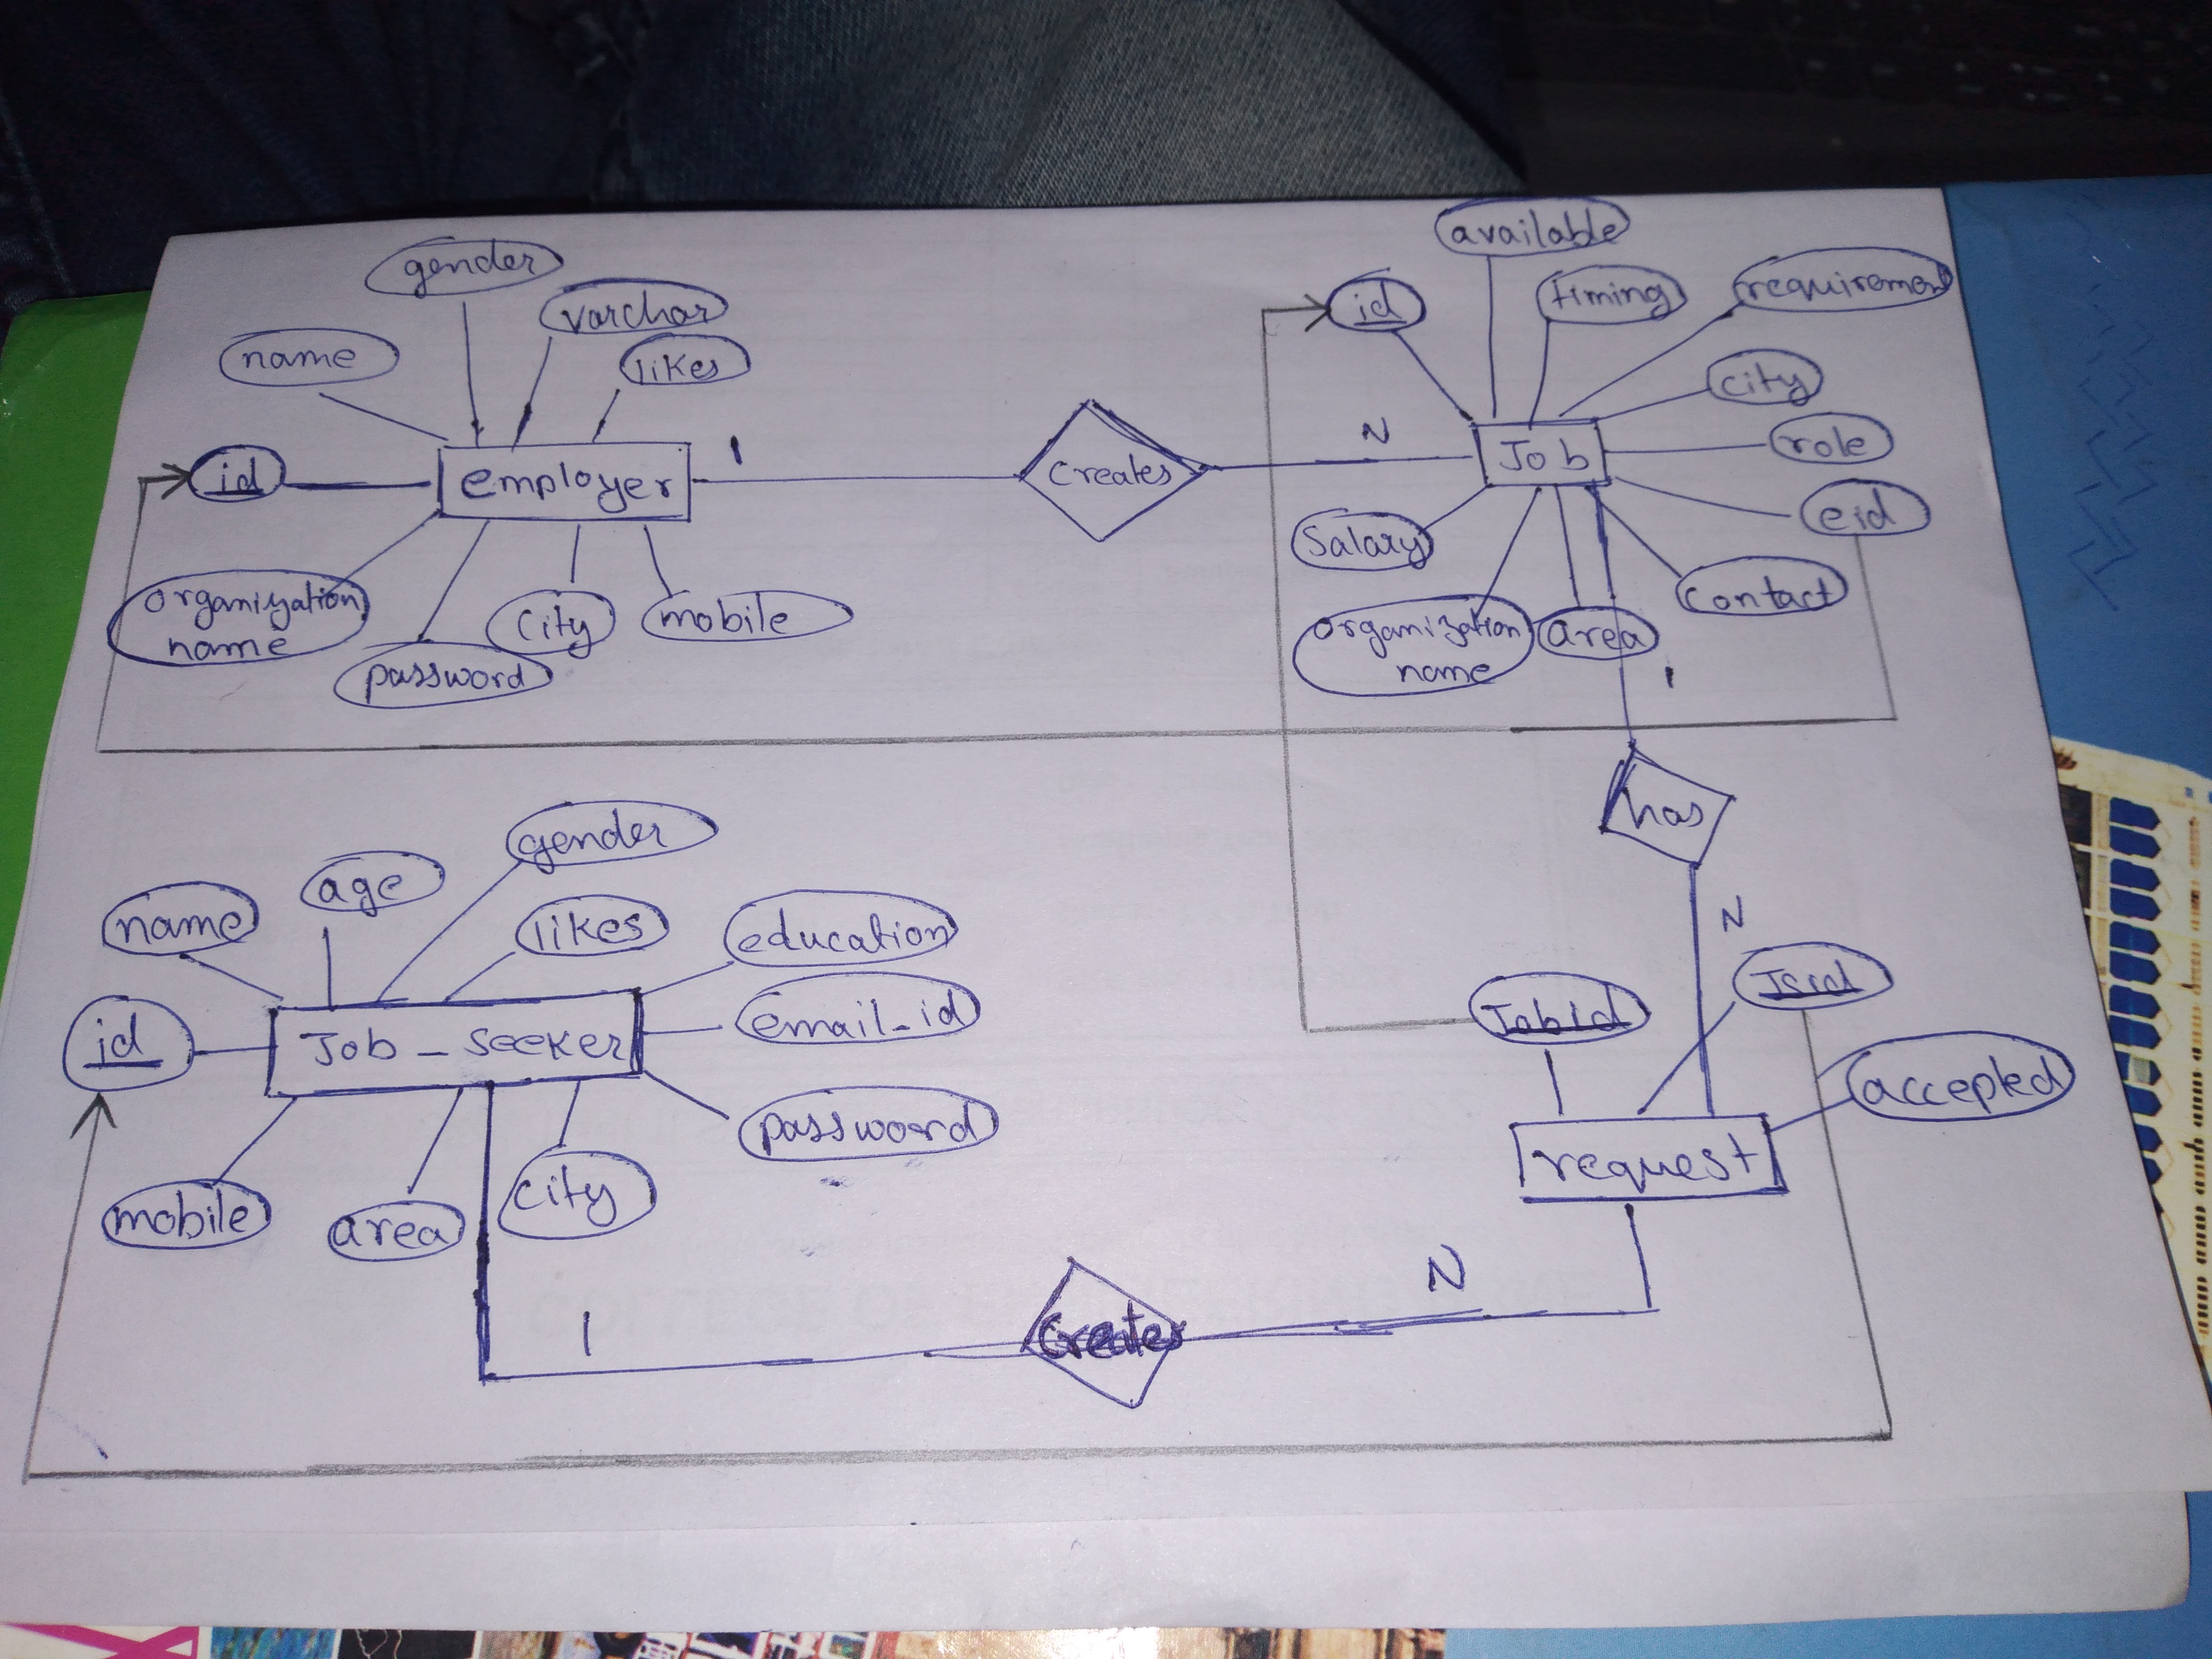 gender
varchar
name
likes
id
employer
organization
name
password
city
mobile
1
Creates
N
available
id
timing
requirement
city
Job
role
eid
Salary
contact
organization
name
area
1
has
N
gender
age
name
likes
education
id
Job_seeker
email_id
password
mobile
area
city
JobId
Jsid
accepted
request
1
Creates
N